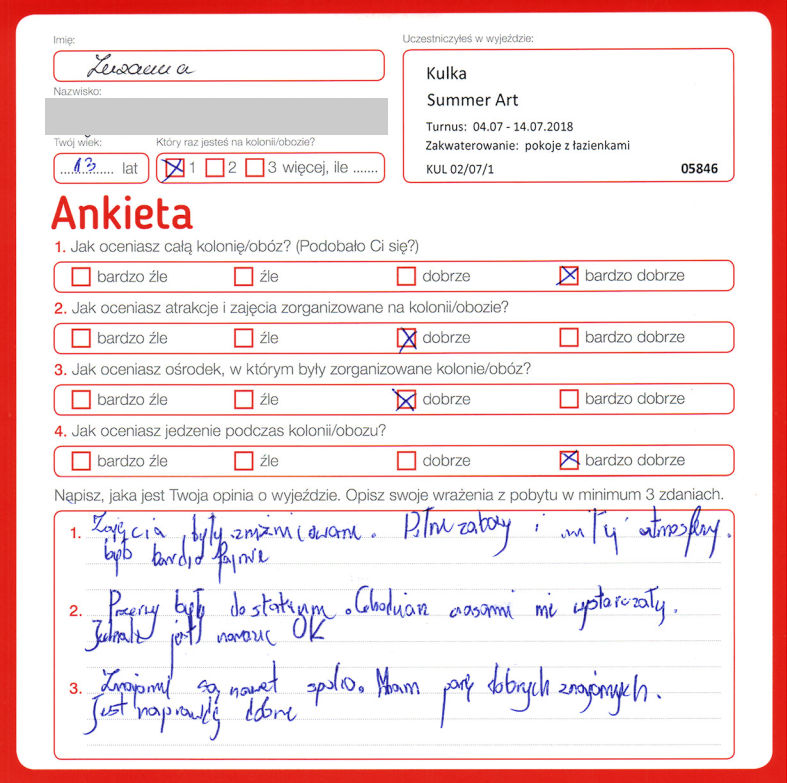 Imię:
Zuzanna
Nazwisko:
Twój wiek:
Który raz jesteś na kolonii/obozie?
..13.. lat
1 2 3 więcej, ile .......
Uczestniczyłeś w wyjeździe:
Kulka
Summer Art
Turnus: 04.07 - 14.07.2018
Zakwaterowanie: pokoje z łazienkami
KUL 02/07/1 05846
Ankieta
1. Jak oceniasz całą kolonię/obóz? (Podobało Ci się?)
bardzo źle źle dobrze bardzo dobrze
2. Jak oceniasz atrakcje i zajęcia zorganizowane na kolonii/obozie?
bardzo źle źle dobrze bardzo dobrze
3. Jak oceniasz ośrodek, w którym były zorganizowane kolonie/obóz?
bardzo źle źle dobrze bardzo dobrze
4. Jak oceniasz jedzenie podczas kolonii/obozu?
bardzo źle źle dobrze bardzo dobrze
Napisz, jaka jest Twoja opinia o wyjeździe. Opisz swoje wrażenia z pobytu w minimum 3 zdaniach.
1. Zajęcia były . Pełne zabawy i miłej atmosfery.
było bardzo fajnie
2. Przerwy były . Chociaż czasami nie wystarczały.
Jednak jest OK
3. Znajomi są nawet spoko. Mam parę dobrych znajomych.
Jest naprawdę dobrze